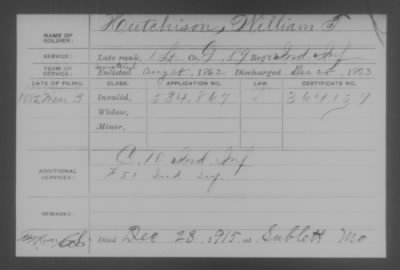 NAME OF SOLDIER: Hutchison, William F
SERVICE: Late rank, 1 Lt. Co. G, 89 Reg't Ind. Inf
TERM OF SERVICE: Enlisted August, 1862 Discharged Dec 28, 1863
DATE OF FILING. CLASS. APPLICATION NO. LAW. CERTIFICATE NO.
1885 Mar. 3 Invalid, 534,867
Widow,
Minor,
ADDITIONAL SERVICES: C. 10 Ind Inf
F 51 Ind Inf
REMARKS:
Died Dec 28, 1915, at Sublett Mo